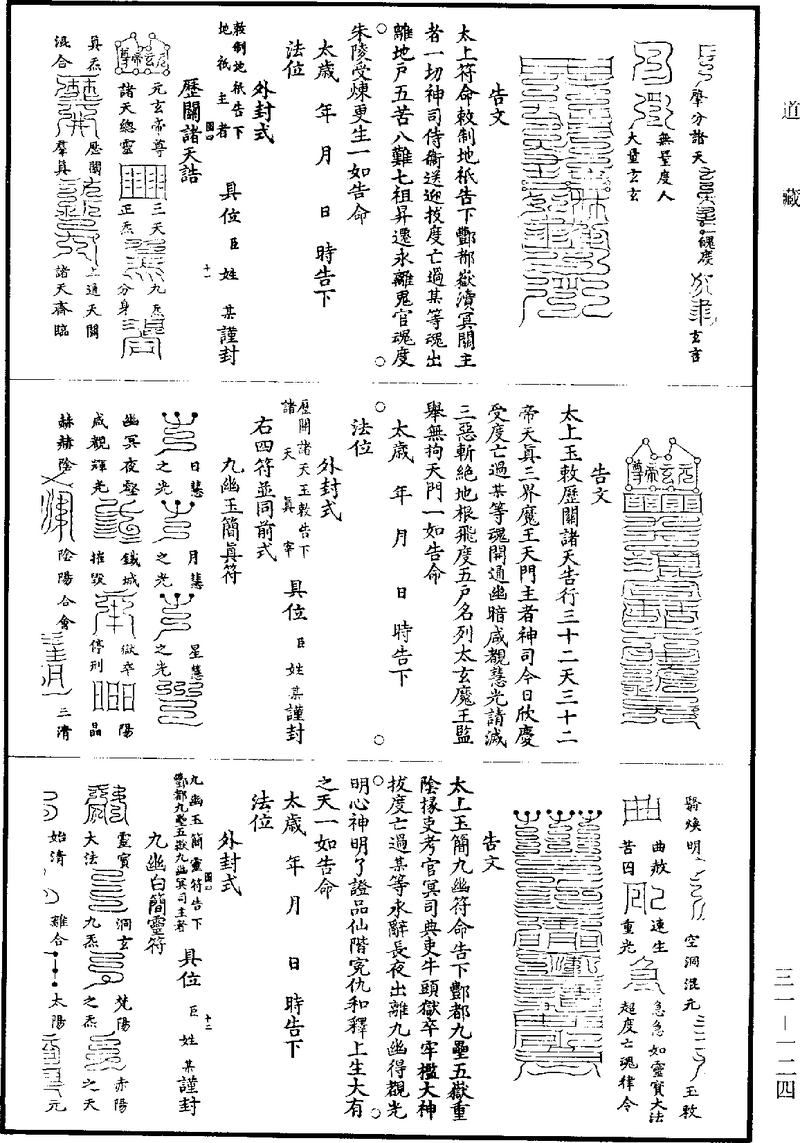 道藏
肇分諸天
魂度
玄言
無量度人
大量玄玄
告文
太上符命敕制地祇告下酆都嶽瀆冥關主
者一切神司侍衛送迎拔度亡過某等魂出
離地戶五苦八難七祖昇遷永離鬼官魂度
朱陵受煉更生一如告命
太歲 年 月 日 時告下
法位
外封式
敕制地祇告下
地祇主者 具位 臣 姓 某謹封
歷關諸天誥
元玄帝尊
元玄帝尊 三天 九炁
諸天總靈 正炁 分身
真炁 歷關 上通天關
混合 羣真 諸天齋臨
元玄帝尊
告文
太上玉敕歷關諸天告行三十二天三十二
帝天真三界魔王天門主者神司今日欣慶
受度亡過某等魂開通幽暗咸覩慧光請滅
三惡斬絕地根飛度五戶名列太玄魔王監
舉無拘天門一如告命
太歲 年 月 日 時告下
法位
外封式
歷關諸天玉敕告下
諸天真宰 具位 臣 姓 某謹封
右四符並同前式
九幽玉簡真符
日慧 月慧 星慧
之光 之光 之光
幽冥夜壑 鐵城 獄卒 陽
咸覩輝光 摧毀 停刑 晶
赫赫陰 陰陽合會 三清
翳煥明 空洞混元 玉敕
曲赦 速生 急急如靈寶大法
苦囚 重光 超度亡魂律令
告文
太上玉簡九幽符命告下酆都九壘五嶽重
陰掾吏考官冥司典吏牛頭獄卒牢檻大神
拔度亡過某等永辭長夜出離九幽得覩光
明心神明了證品仙階寃仇和釋上生大有
之天一如告命
太歲 年 月 日 時告下
法位
外封式
九幽玉簡靈符告下
酆都九壘五嶽九幽冥司主者 具位 臣 姓 某謹封
九幽白簡靈符
靈寶 洞玄 梵陽 赤陽
大法 九炁 之炁 之天
始清 難合 太陽 元
三一－一二四